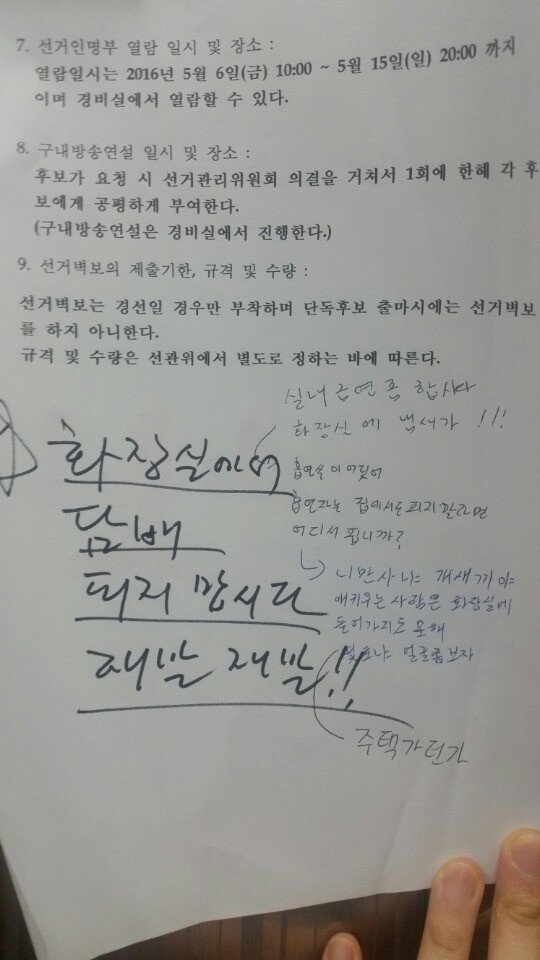 7. 선거인명부 열람 일시 및 장소 :
열람일시는 2016년 5월 6일(금) 10:00 ~ 5월 15일(일) 20:00 까지
이며 경비실에서 열람할 수 있다.
8. 구내방송연설 일시 및 장소 :
후보가 요청 시 선거관리위원회 의결을 거쳐서 1회에 한해 각 후
보에게 공평하게 부여한다.
(구내방송연설은 경비실에서 진행한다.)
9. 선거벽보의 제출기한, 규격 및 수량 :
선거벽보는 경선일 경우만 부착하며 단독후보 출마시에는 선거벽보
를 하지 아니한다.
규격 및 수량은 선관위에서 별도로 정하는 바에 따른다.
화장실에서
담배
피지 맙시다
제발 제발!!
실내 금연좀 합시다
화장실에 냄새가 !!!
흡연실이 어딨어
흡연자는 집에서도 피지 말라면
어디서 핍니까?
니만사냐 개새끼야
애키우는 사람은 화장실에
들어가지도 못해
몇호냐 얼굴좀보자
주택가던가